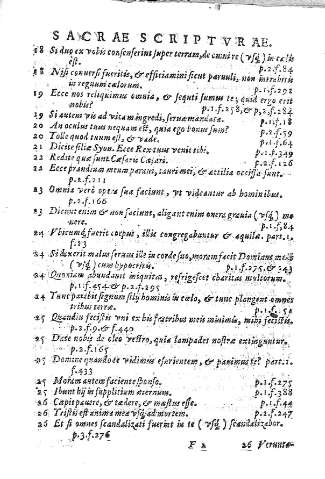 SACRAE SCRIPTVRAE.
18 Si duo ex vobis consenserint super terram, de omni re (vsq́) in cælis
est. p.2.f.84
18 Nisi conuersi fueritis, & efficiamini sicut paruuli, non intrabitis
in regnum cælorum. p.1.f.292
19 Ecce nos reliquimus omnia, & sequti sumus te, quid ergo erit
nobis? p.1.f.258, & p.2.f.284
19 Si autem vis ad vitam ingredi, serua mandata. p.1.f.18
20 An oculus tuus nequam est, quia ego bonus sum? p.2.f.59
20 Tolle quod tuum est, & vade. p.1.f.64
21 Dicite filiæ Syon. Ecce Rex tuus venit tibi. p.1.f.349
22 Reddite quæ sunt Cæsaris Cæsari. p.2.f.126
22 Ecce prandium meum paraui, tauri mei, & altilia occisa sunt.
p.2.f.211
23 Omnia verò opera sua faciunt, vt videantur ab hominibus.
p.2.f.166
23 Dicunt enim & non faciunt, aligant enim onera grauia (vsq́) mo
uere. p.1.f.93
24 Vbicumq́ fuerit corpus, illic congregabuntur & aquilæ. part.1.
f.23
24 Si dixerit malus seruus ille in corde suo, moram facit Dominus meus
(vsq́) cum hypocritis. p.1.f.275, & 343
24 Quoniam abundauit iniquitas, refrigescet charitas multorum.
p.1.f.454 & p.2.f.295
24 Tunc parebit signum filij hominis in cælo, & tunc plangent omnes
tribus terræ. p.1.f.50
25 Quandiu fecistis vni ex his fratribus meis minimis, mihi fecistis.
p.2.f.9, & f.440
25 Date nobis de oleo vestro, quia lampades nostræ extinguntur.
p.2.f.165
25 Domine quando te vidimus esurientem, & pauimus te? part.1.
f.433
25 Moram autem faciente sponso. p.1.f.275
25 Ibunt hij in supplitium æternum. p.1.f.388
26 Cæpit pauere, & tædere, & mæstus esse. p.1.f.44
26 Tristis est anima mea vsq́ ad mortem. p.2.f.247
26 Et si omnes scandalizati fuerint in te (vsq́) scandalizabor.
p.3.f.276
F 2 26 Verunta-